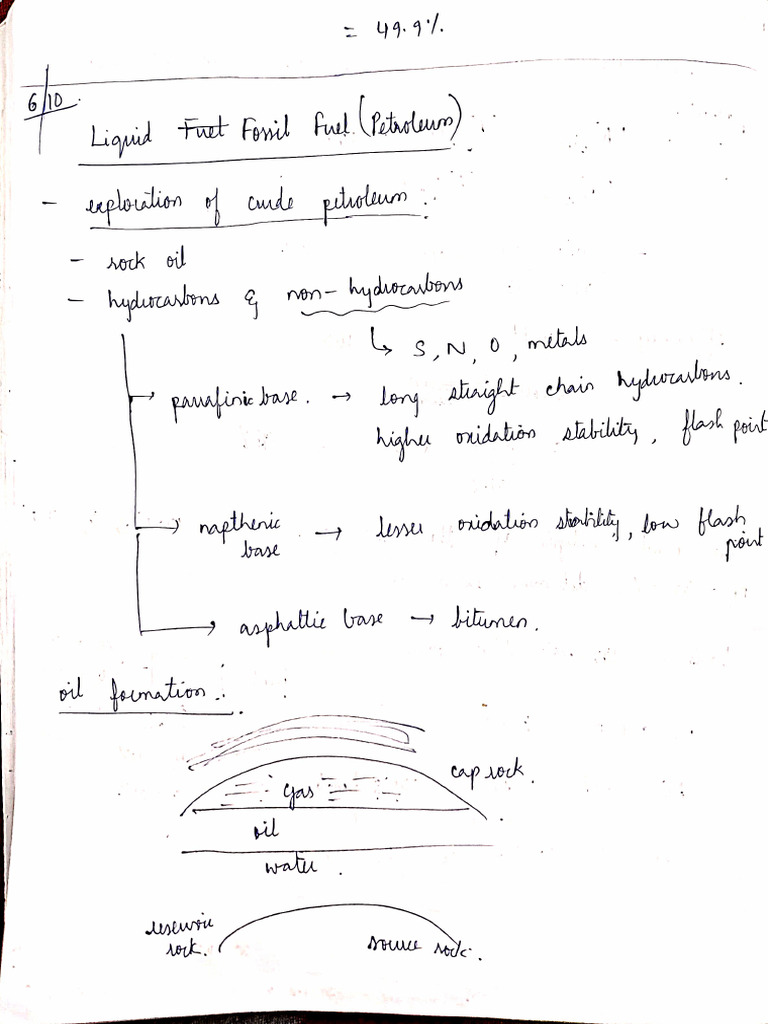 = 49.9%
6/10
Liquid Fuel Fossil Fuel (Petroleum)
- exploration of crude petroleum
- rock oil
- hydrocarbons & non-hydrocarbons
↳ S, N, O, metals
→ paraffinic base → long straight chain hydrocarbons.
higher oxidation stability, flash point
→ napthenic → lesser oxidation stability, low flash
base point
→ asphaltic base → bitumen.
oil formation
cap rock.
gas
oil
water.
reservoir
rock. source rock.